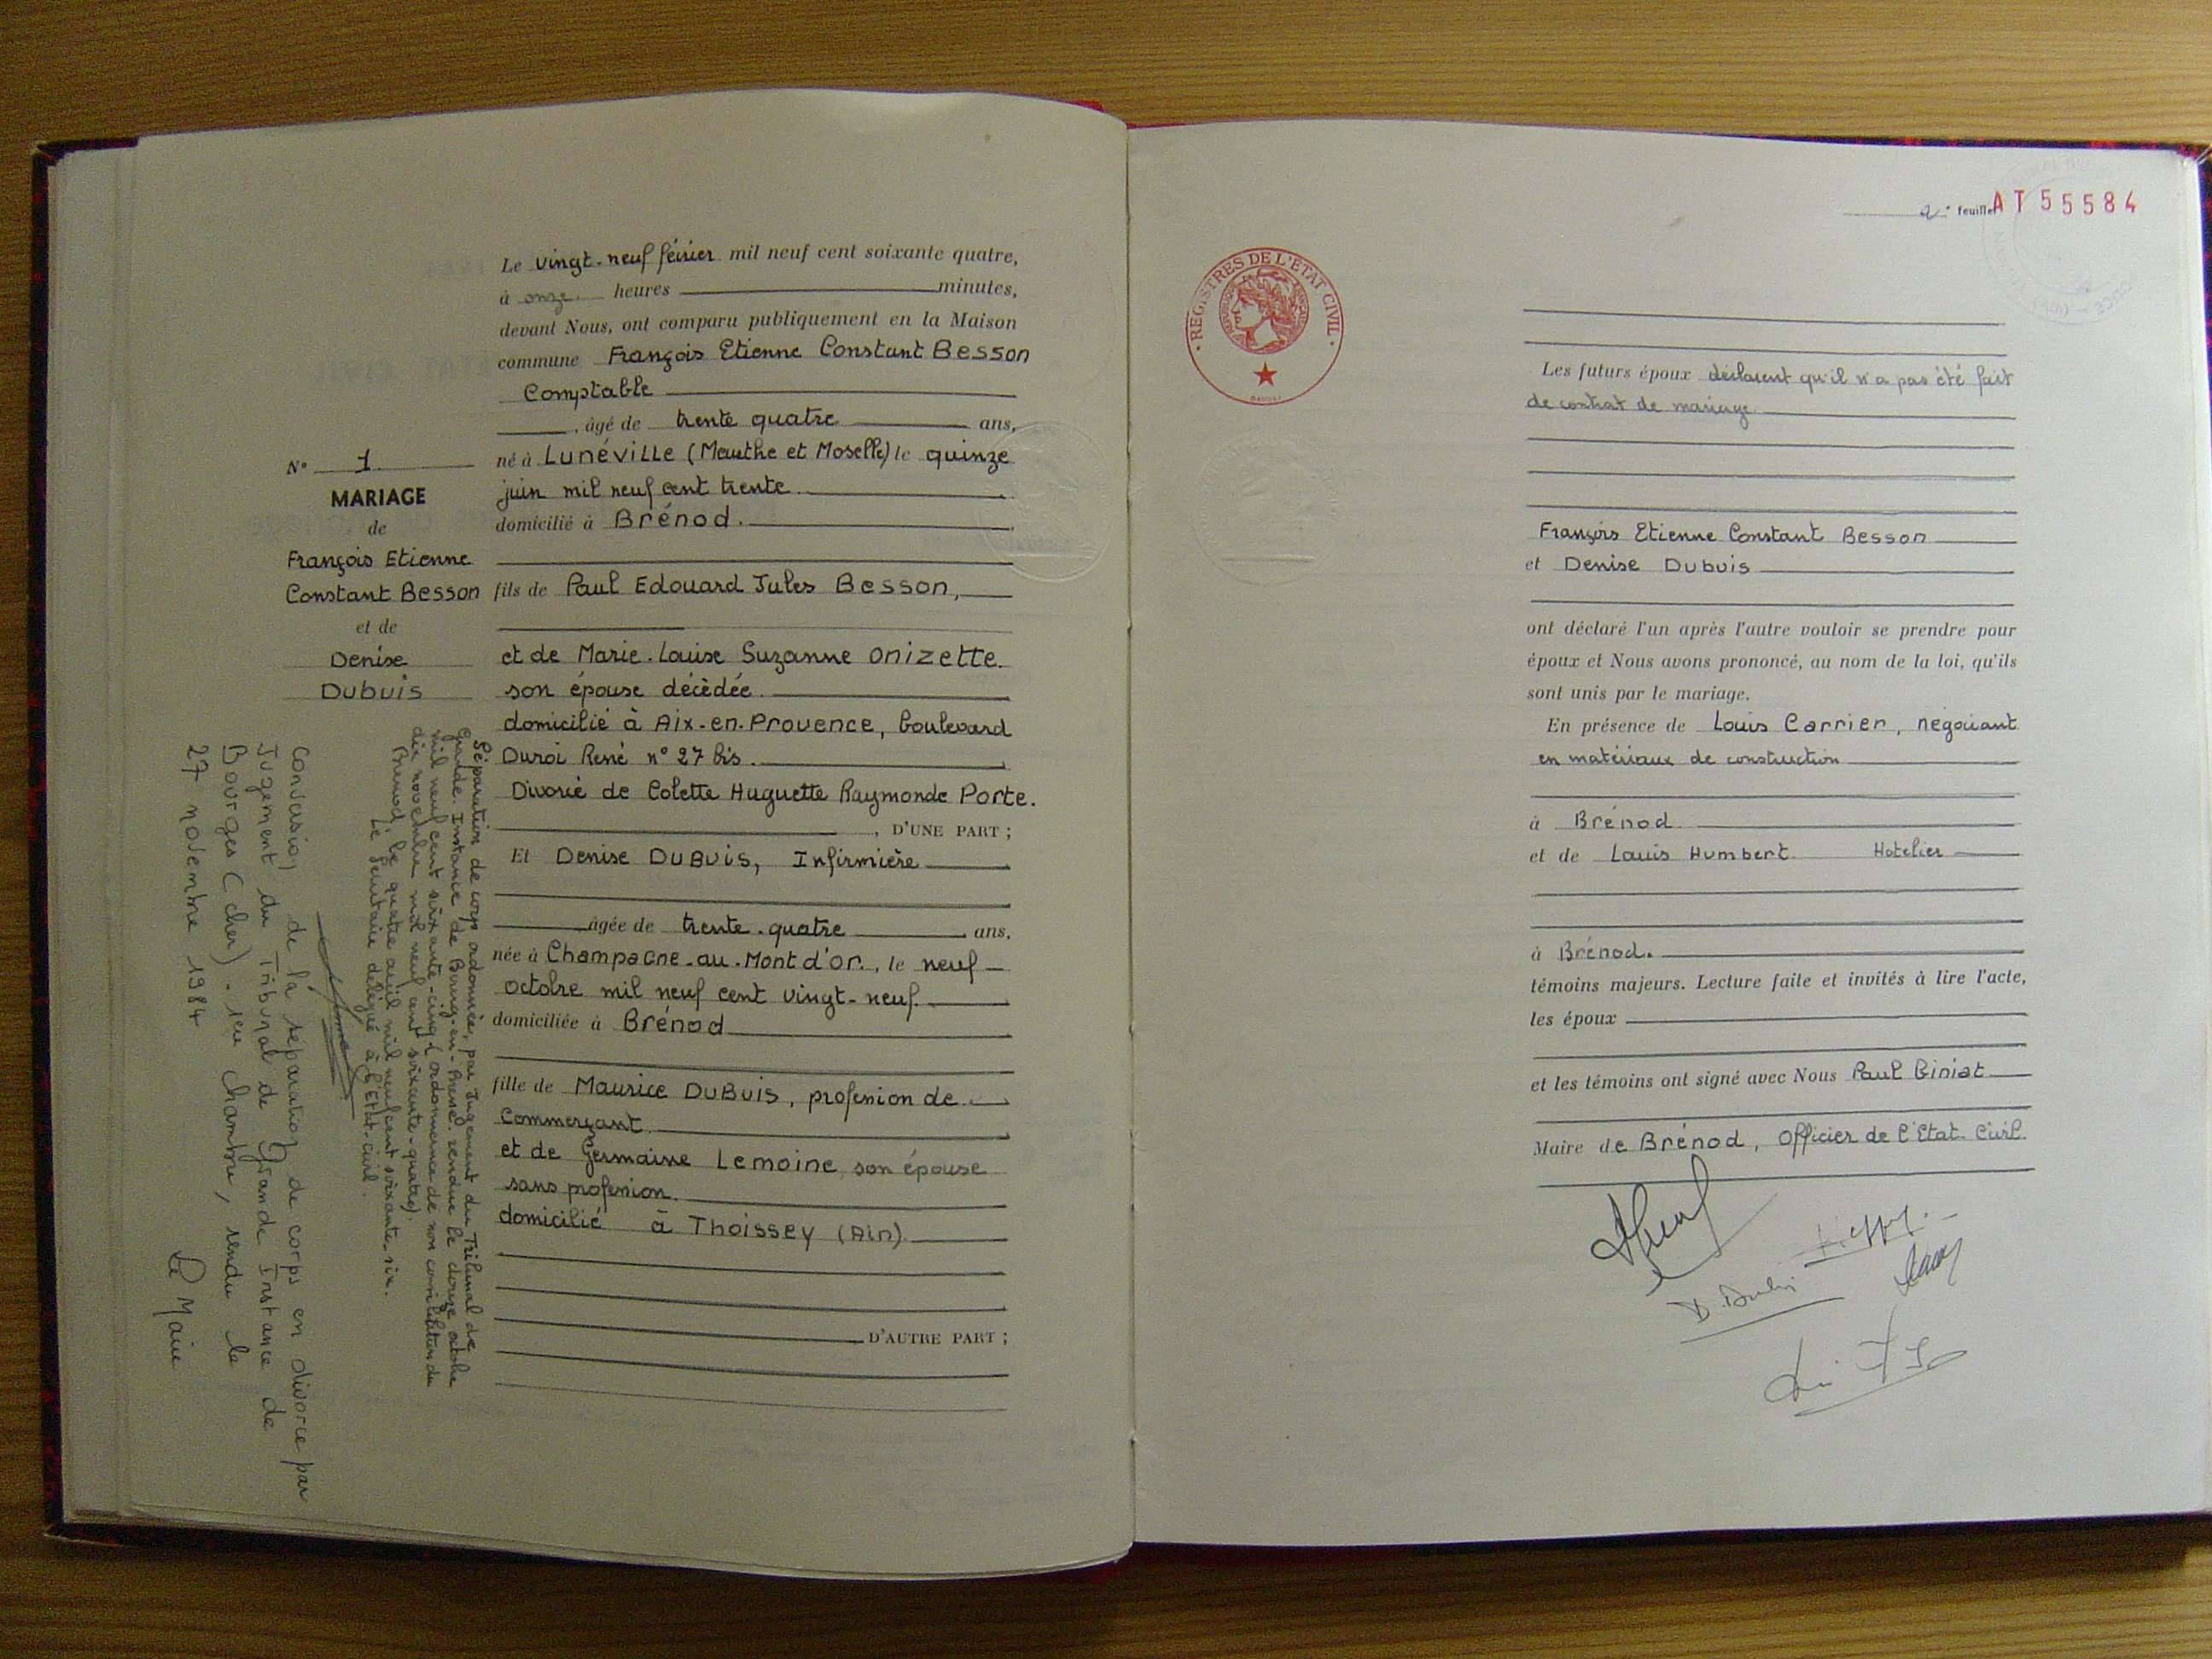 Le vingt-neuf février mil neuf cent soixante quatre,
à onze heures minutes,
devant Nous, ont comparu publiquement en la Maison
commune François Etienne Constant Besson
Comptable
, âgé de trente quatre ans,
né à Lunéville (Meurthe et Moselle) le quinze
juin mil neuf cent trente
domicilié à Brénod.
fils de Paul Edouard Jules Besson,
et de Marie-Louise Suzanne Onizette.
son épouse décédée.
domicilié à Aix-en-Provence, boulevard
Duroi René n° 27 bis.
Divorcé de Colette Huguette Raymonde Porte.
, D'UNE PART ;
Et Denise DUBUIS, Infirmière
âgée de trente-quatre ans,
née à Champagne-au-Mont d'or., le neuf
octobre mil neuf cent vingt-neuf.
domiciliée à Brénod
fille de Maurice DUBUIS, profession de
Commerçant
et de Germaine Lemoine, son épouse
sans profession.
domicilié à Thoissey (Ain)
D'AUTRE PART ;
N° 1
MARIAGE
de
François Etienne
Constant Besson
et de
Denise
Dubuis
Séparation de corps ordonnée, par Jugement du Tribunal de
Grande Instance de Bourg-en-Bresse rendue le douze octobre
mil neuf cent soixante-cinq (ordonnance de non conciliation du
dix novembre mil neuf cent soixante-quatre).
Brénod, le quatre avril mil neuf cent soixante-six.
Le Secrétaire délégué à l'Etat-Civil.
Conversion de la séparation de corps en divorce par
Jugement du Tribunal de Grande Instance de
Bourges (Cher) - 1ère chambre, rendu le
27 novembre 1984
Le Maire
2e feuillet
AT55584
REGISTRES DE L'ETAT CIVIL
Les futurs époux déclarent qu'il n'a pas été fait
de contrat de mariage.
François Etienne Constant Besson
et Denise Dubuis
ont déclaré l'un après l'autre vouloir se prendre pour
époux et Nous avons prononcé, au nom de la loi, qu'ils
sont unis par le mariage.
En présence de Louis Carrier, négociant
en matériaux de construction
à Brénod
et de Louis Humbert Hotelier
à Brénod.
témoins majeurs. Lecture faite et invités à lire l'acte,
les époux
et les témoins ont signé avec Nous Paul Giniat
Maire de Brénod, Officier de l'Etat-Civil.
D. Dubuis